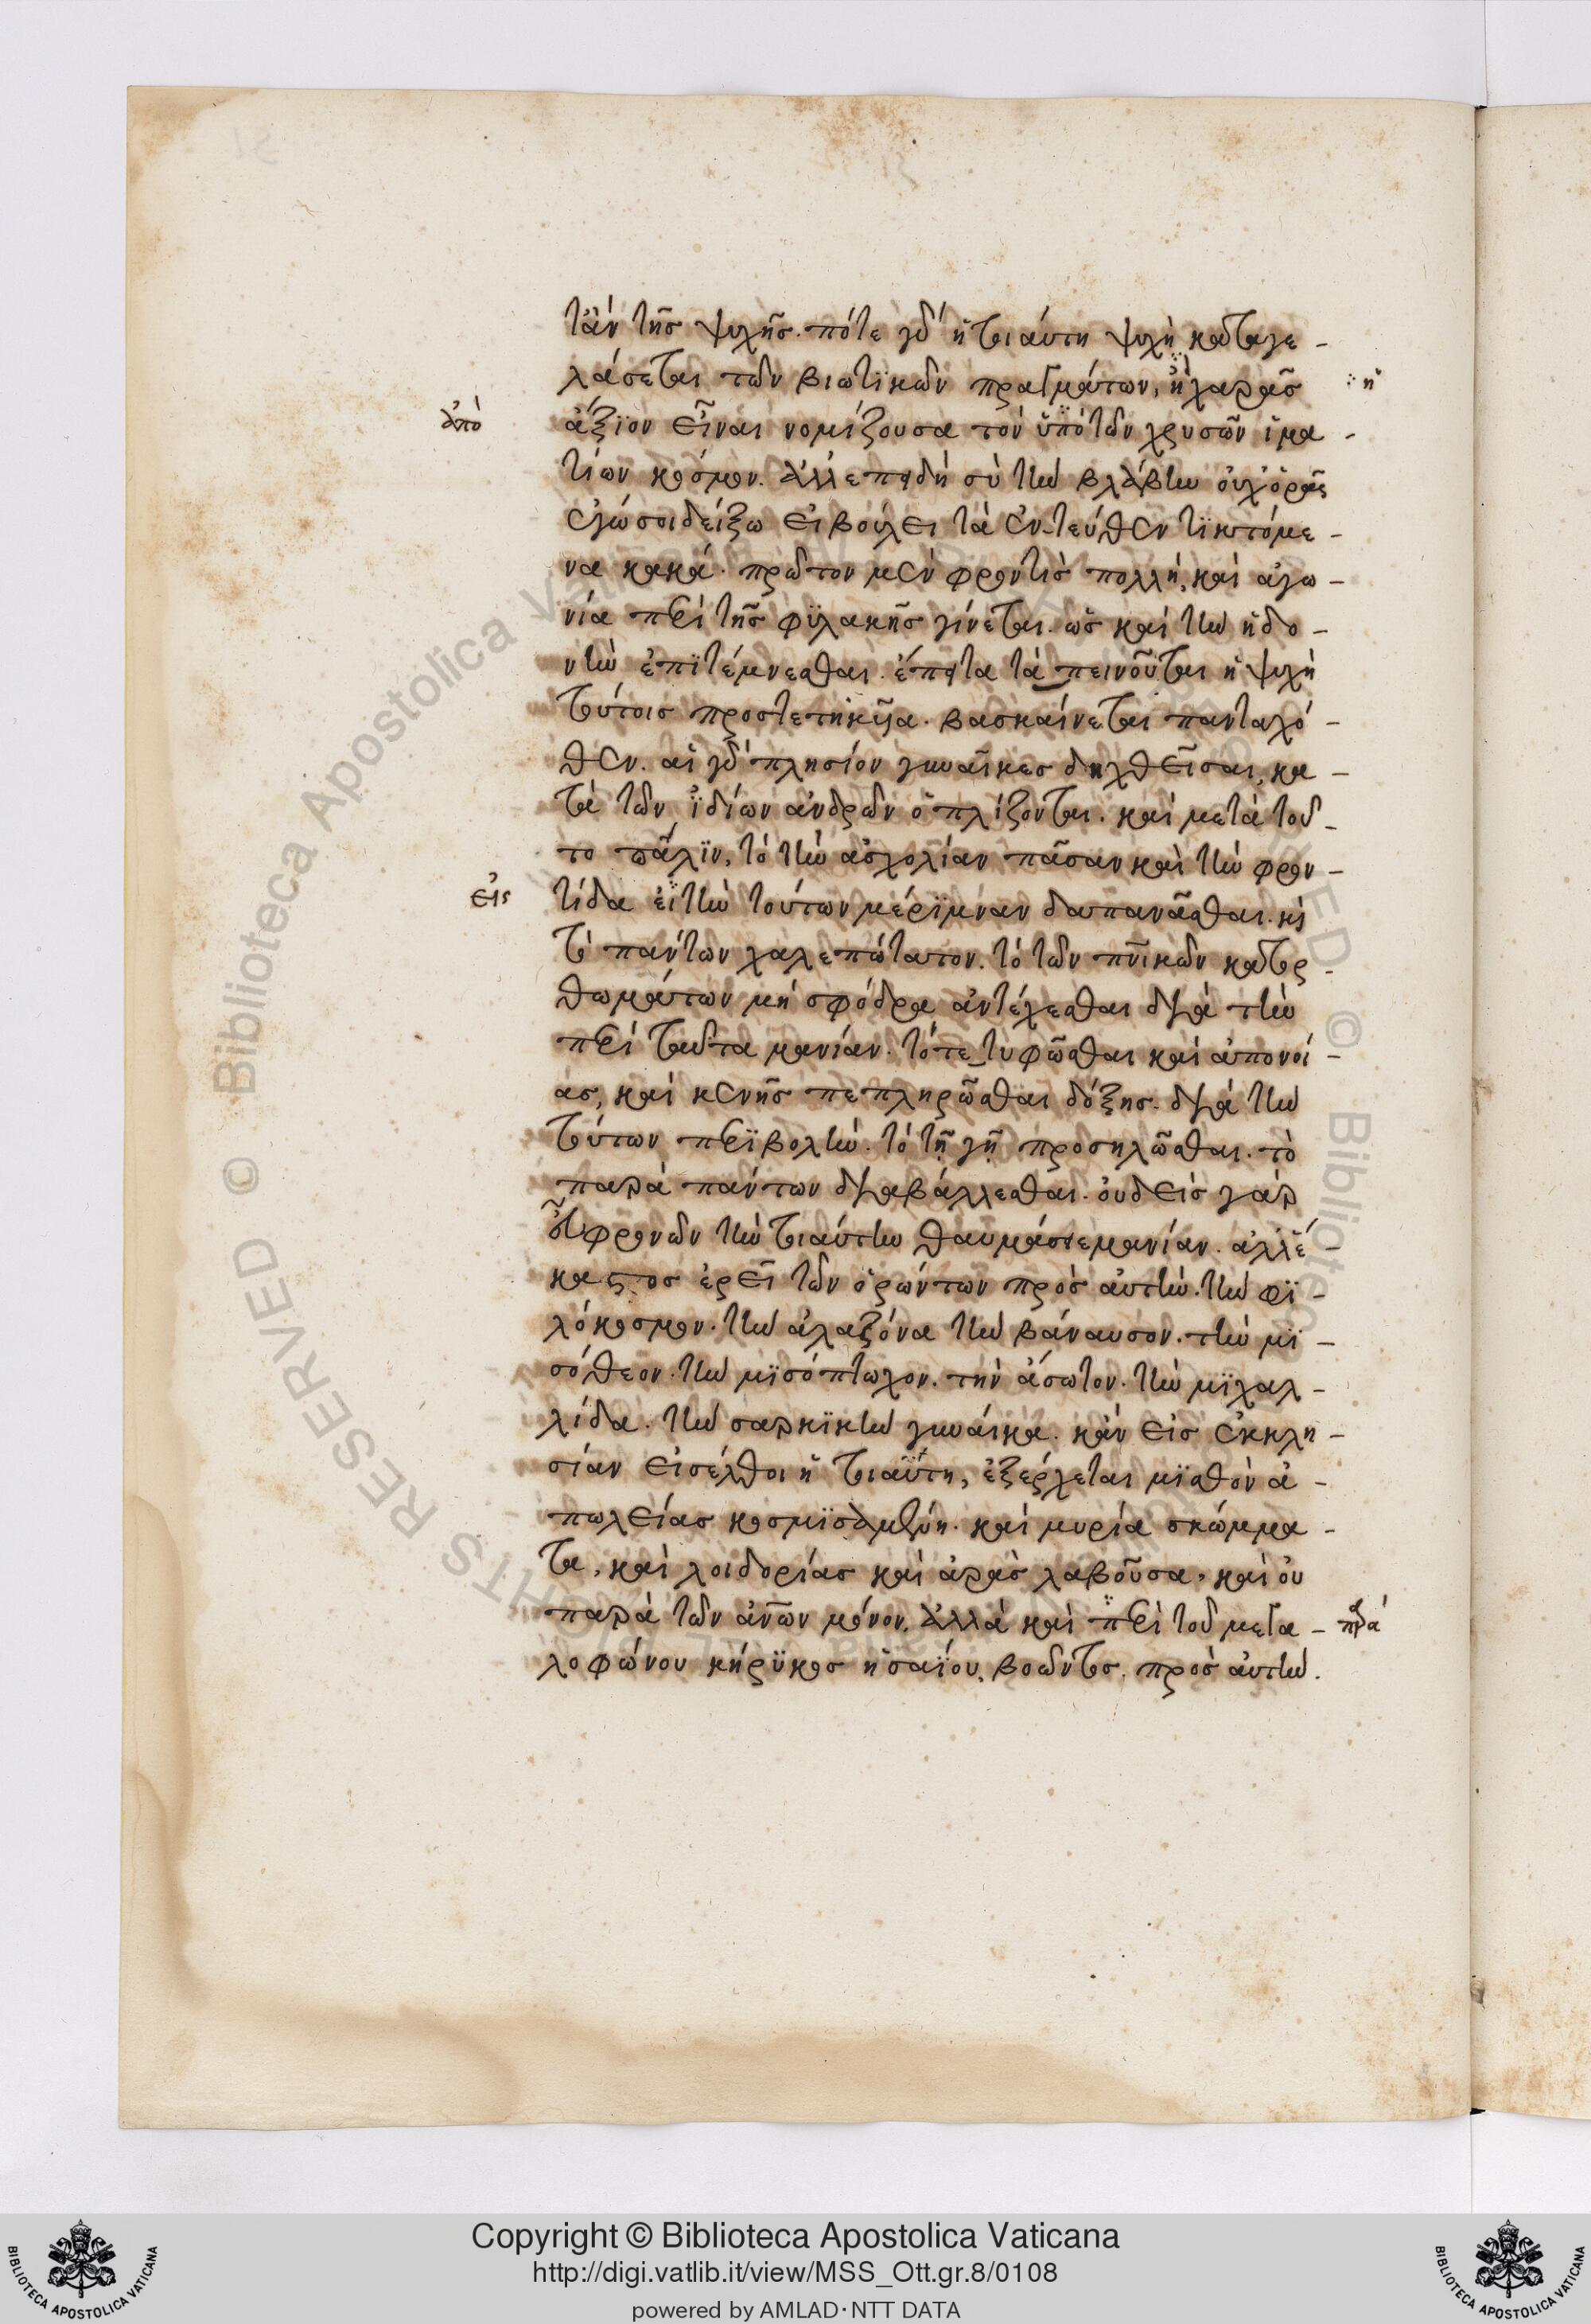 τὰν τῆς ψυχῆς. πότε γὰρ ἡ τοιάυτη ψυχὴ καταγε -
λάσεται τῶν βιωτϊκῶν πραγμάτων, ἢ χαρᾶς
ἢ
ἀπὸ
ἄξϊον εἶναι νομίζουσα τὸν ὑπὸ τῶν χρυσῶν ἱμα -
τίων κόσμον. ἀλλ ἐπειδὴ σὺ τὴν βλάβην οὐχ ὁρᾶς
ἐγώ σοι δείξω εἰ βούλει τὰ ἐντεύθεν τϊκτόμε -
να κακά. πρῶτον μὲν φροντὶς πολλὴ, καὶ ἀγω -
νία περὶ τῆς φϋλακῆς γίνεται. ὡς καὶ τὴν ἡδο -
νὴν ἐπϊτέμνεσθαι. ἔπειτα ταπεινοῦται ἡ ψυχὴ
τούτοις προστετηκυῖα. βασκαίνεται πανταχό -
θεν. αἱ γὰρ πλησίον γυναῖκες δηχθεῖσαι, κα -
τὰ τῶν ἰδίων ἀνδρῶν ὁπλίζονται. καὶ μετὰ τοῦ -
το πάλϊν, τὸ τὴν ἀσχολίαν πᾶσαν καὶ τὴν φρον -
εἰς
τίδα εἰ τὴν τούτων μέρϊμναν δαπανᾶσθαι. καὶ
τὸ πάντων χαλεπώτατον. τὸ τῶν πνϊκῶν κατορ -
θωμάτων μὴ σφόδρα ἀντέχεσθαι διὰ τὴν
περὶ ταῦτα μανίαν. τό τε τυφῶσθαι καὶ ἀπονοί -
ας, καὶ κενῆς πεπληρῶσθαι δόξης. διὰ τὴν
τούτων περϊβολὴν. τὸ τῇ γῇ προσηλῶσθαι. τὸ
παρὰ πάντων διαβάλλεσθαι. οὐδεὶς γὰρ
εὖ φρονῶν τὴν τοιάυτην θαυμάσει μανίαν. ἀλλ ἕ -
καστος ἐρεῖ τῶν ὁρώντων πρὸς αὐτὴν. τὴν φϊ -
λόκοσμον. τὴν ἀλαζόνα τὴν βάναυσον. τὴν μϊ -
σόθεον. τὴν μϊσόπτωχον. τὴν ἄσωτον. τὴν μϊχαλ -
λίδα. τὴν σαρκϊκὴν γυναίκα. κἂν εἰς ἐκκλη -
σίαν εἰσέλθοι ἡ τοιαύτη, ἐξέρχεται μϊσθὸν ἀ -
πωλείας κομϊσαμένη. καὶ μυρία σκώμμα -
τα, καὶ λοιδορίας καὶ ἀρὰς λαβοῦσα, καὶ οὐ
παρὰ τῶν ἀνῶν μόνον. ἀλλὰ καὶ περὶ τοῦ μεγα -
παρὰ
λοφώνου κήρϋκος ἡσαΐου, βοῶντος. πρὸς αὐτὴν.
Copyright © Biblioteca Apostolica Vaticana
http://digi.vatlib.it/view/MSS_Ott.gr.8/0108
powered by AMLAD·NTT DATA
BIBLIOTECA APOSTOLICA VATICANA
BIBLIOTECA APOSTOLICA VATICANA